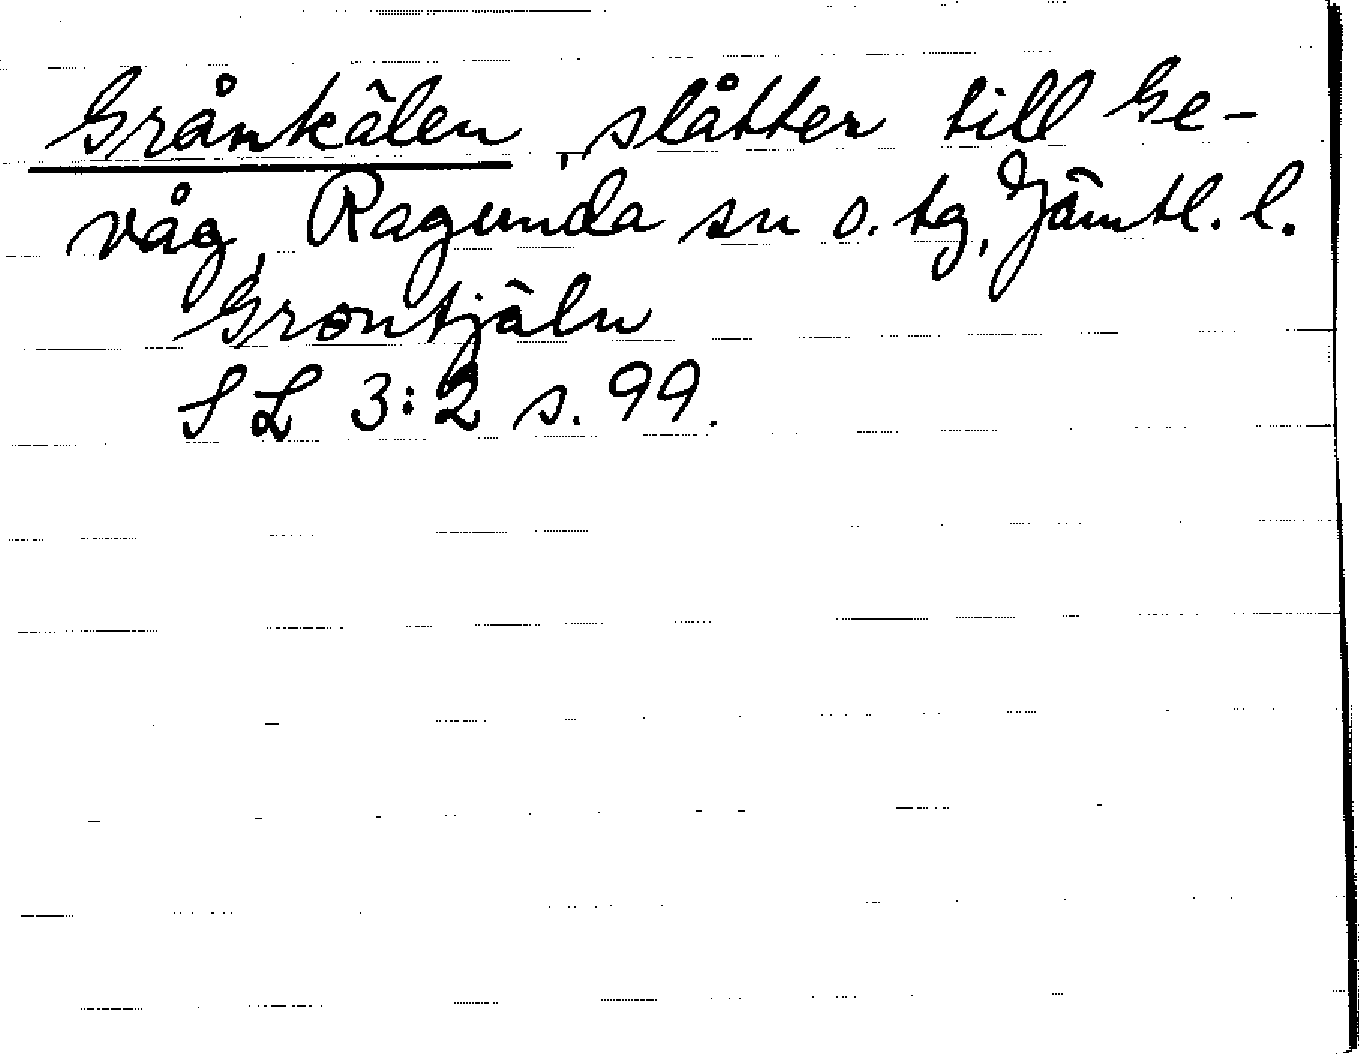 Grånkälen, slåtter till Ge-
våg, Ragunda sn o. tg, Jämtl. l.
Grontjäln
SL 3:2 s. 99.